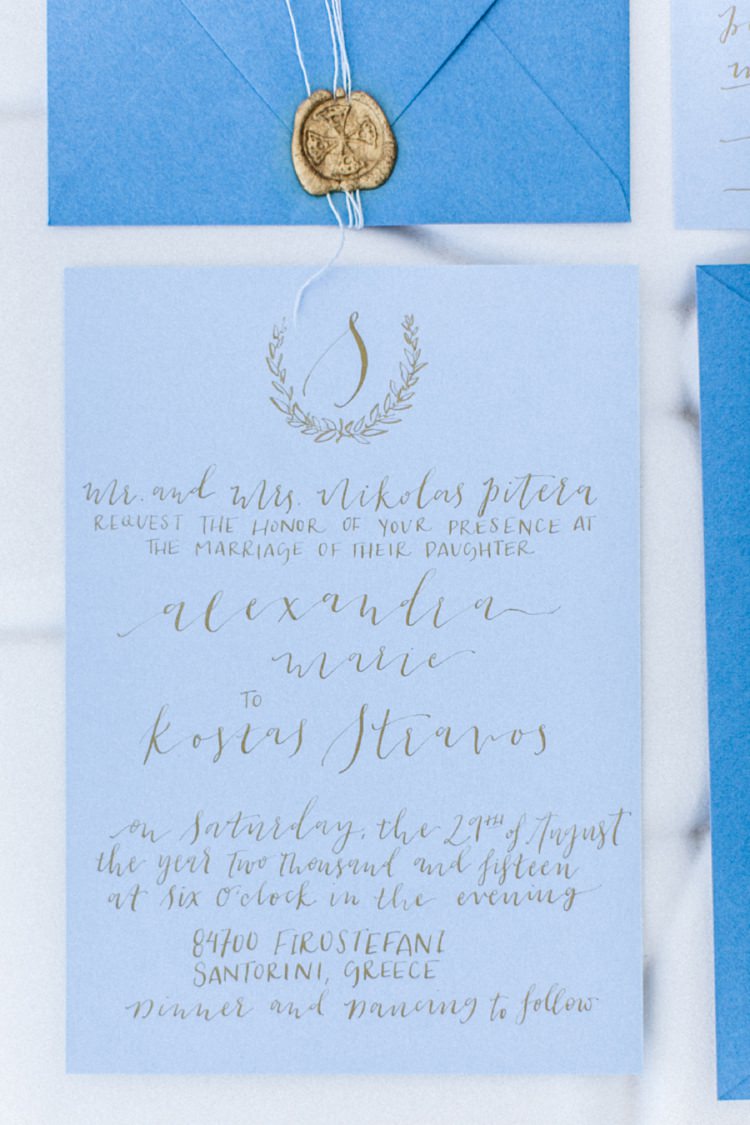 S
Mr. and Mrs. Nikolas Pitera
REQUEST THE HONOR OF YOUR PRESENCE AT
THE MARRIAGE OF THEIR DAUGHTER
alexandra
marie
TO
Kostas Stravos
on Saturday, the 29th of August
the year Two Thousand and fifteen
at six O'clock in the evening
84700 FIROSTEFANI
SANTORINI, GREECE
Dinner and Dancing to follow